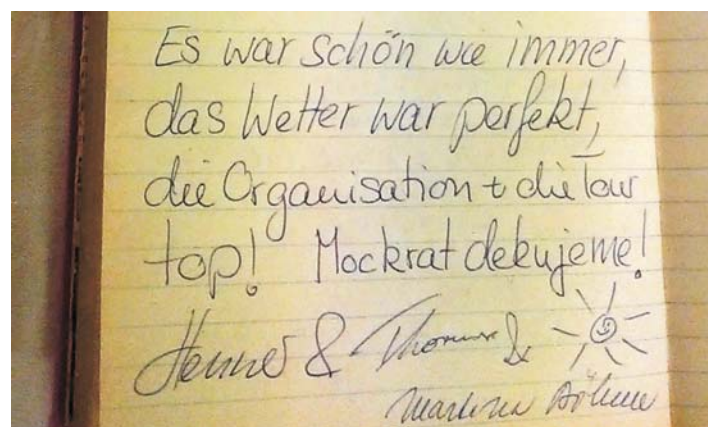 Es war schön wie immer,
das Wetter war perfekt,
die Organisation + die Tour
top! Mockrat dekujeme!
Henner & Thomas &
Martina Böhme